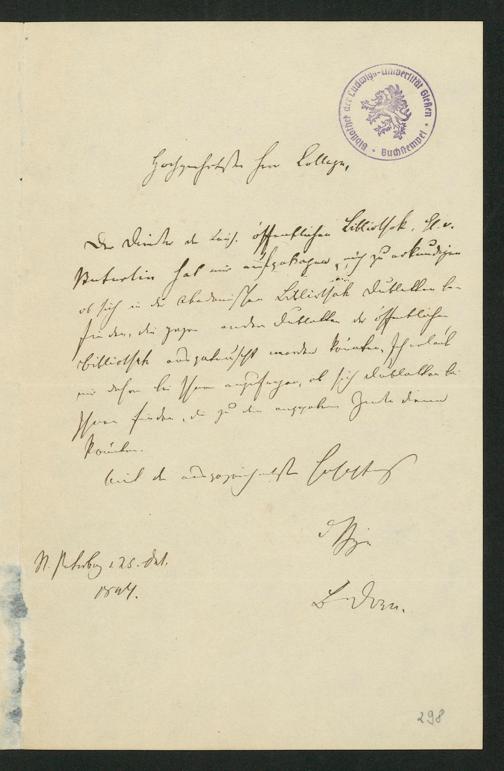 Bibliothek der Ludwigs-Universität Gießen
• Buchstempel •
Hochgeehrtester Herr College,
Der Director der Kais. öffentlichen Bibliothek, H. v.
hat mir aufgetragen, mich zu erkundigen
ob sich in der Akademischen Bibliothek Dubletten be-
finden, die gegen andere Dubletten der öffentlichen
Bibliothek ausgetauscht werden könnten. Ich
mir daher bei Ihnen anzufragen, ob sich Dubletten bei
Ihnen finden, die zu dem angegebenen Zwecke dienen
könnten.
Mit der ausgezeichnetsten
der Ihrige
B. Dorn.
St. Petersburg 25. Oct.
298